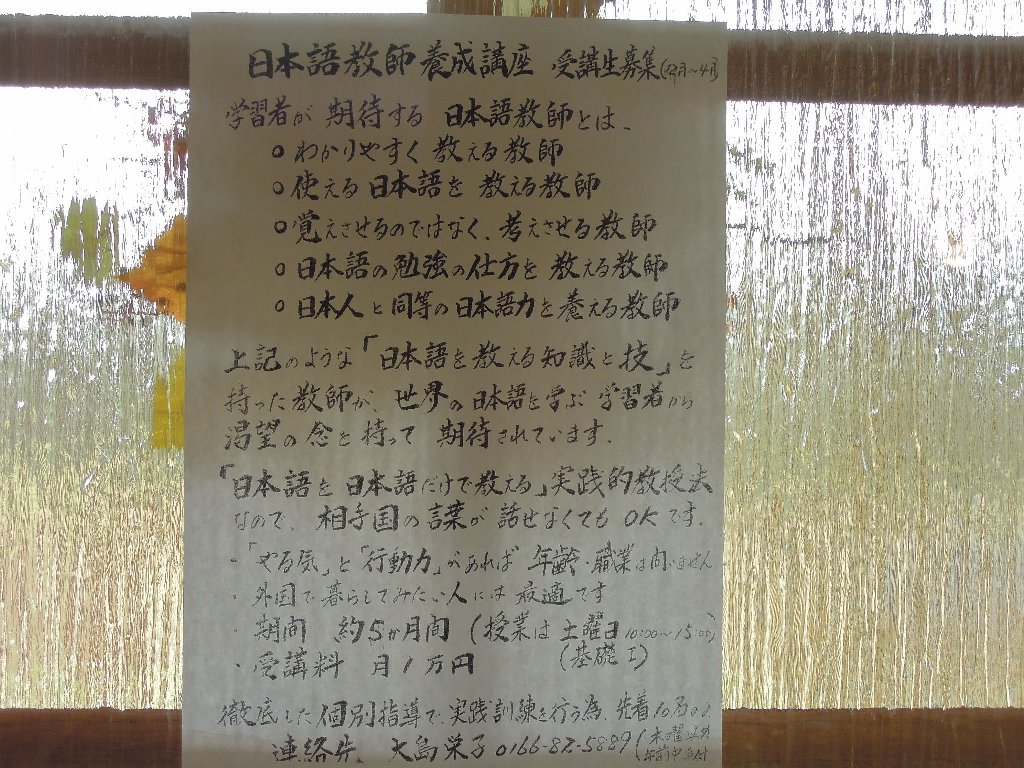 日本語教師養成講座 受講生募集(02月~4月)
学習者が期待する 日本語教師とは、
○わかりやすく教える教師
○使える日本語を教える教師
○覚えさせるのではなく、考えさせる教師
○日本語の勉強の仕方を教える教師
○日本人と同等の日本語力を養える教師
上記のような「日本語を教える知識と技」を
持った教師が、世界の日本語を学ぶ学習者から
渇望の念を持って 期待されています。
「日本語を日本語だけで教える」実践的教授法
なので、相手国の言葉が話せなくてもOKです。
・「やる気」と「行動力」があれば 年齢・職業は問いません
・外国で暮らしてみたい人には最適です
・期間 約5か月間 (授業は土曜日10:00~15:00)
(基礎I)
・受講料 月1万円
徹底した個別指導で、実践訓練を行う為、先着10名
連絡先、大島栄子 0166-82-5889